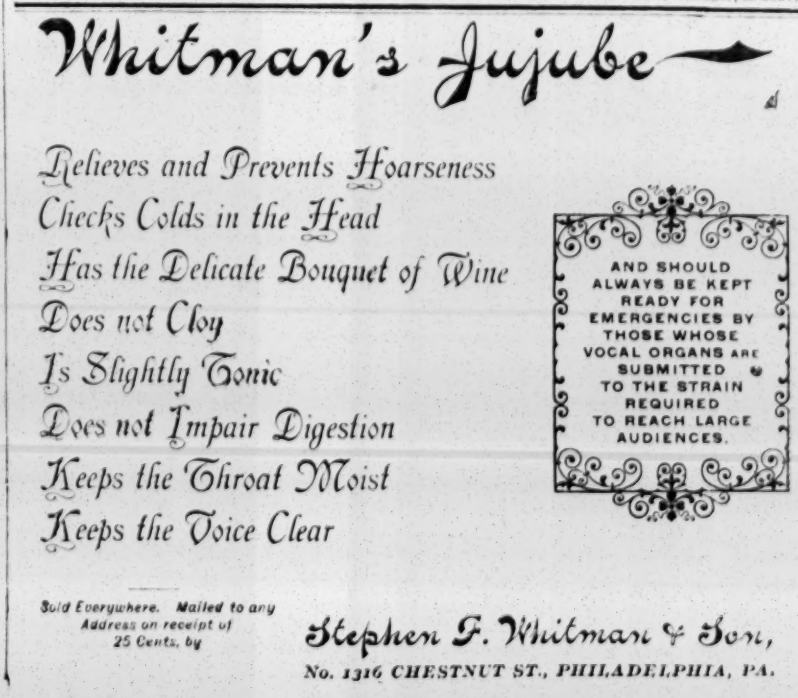 Whitman's Jujube
Relieves and Prevents Hoarseness
Checks Colds in the Head
Has the Delicate Bouquet of Wine
Does not Cloy
Is Slightly Tonic
Does not Impair Digestion
Keeps the Throat Moist
Keeps the Voice Clear
AND SHOULD
ALWAYS BE KEPT
READY FOR
EMERGENCIES BY
THOSE WHOSE
VOCAL ORGANS ARE
SUBMITTED
TO THE STRAIN
REQUIRED
TO REACH LARGE
AUDIENCES.
Sold Everywhere. Mailed to any
Address on receipt of
25 Cents, by
Stephen F. Whitman & Son,
No. 1316 CHESTNUT ST., PHILADELPHIA, PA.